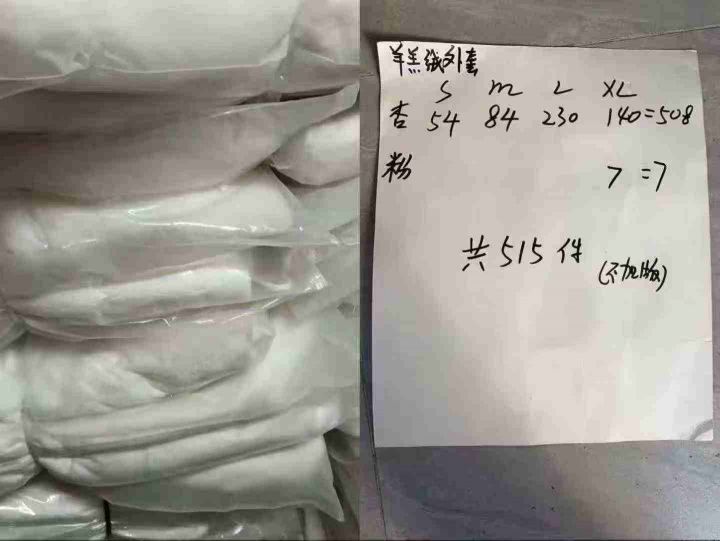 羊羔绒外套
S M L XL
杏 54 84 230 140=508
粉 7 =7
共515件
(不加版)